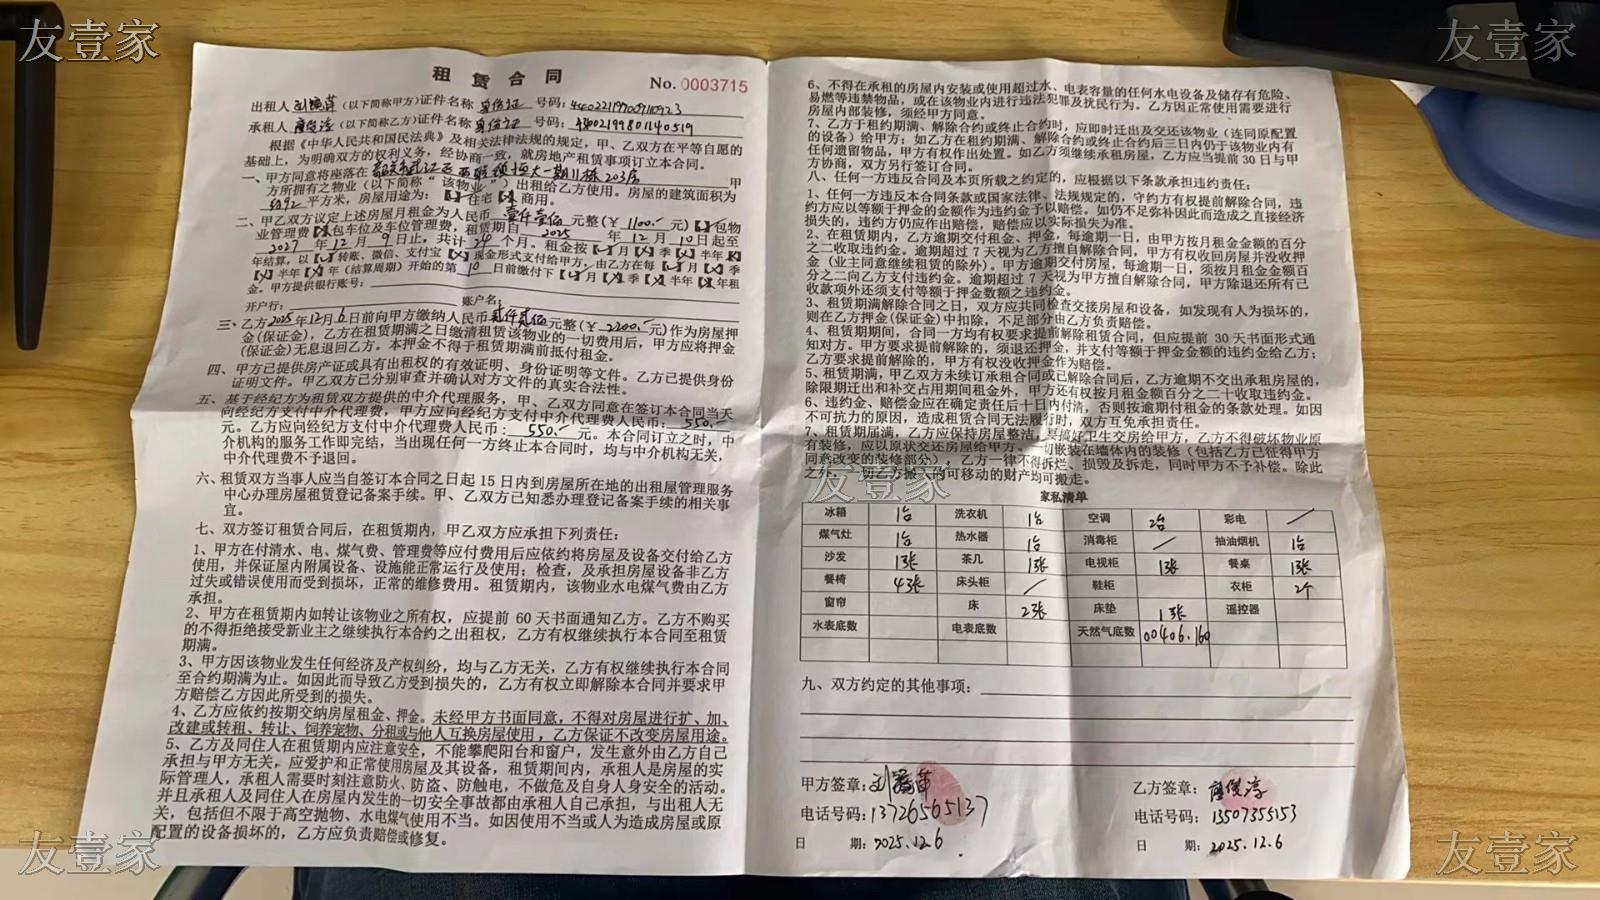 友壹家
友壹家
租赁合同 No.0003715
出租人（以下简称甲方）证件名称 身份证 号码：
承租人（以下简称乙方）证件名称 身份证 号码：
根据《中华人民共和国民法典》及相关法律法规的规定，甲、乙双方在平等自愿的
基础上，为明确双方的权利义务，经协商一致，就房地产租赁事项订立本合同。
一、甲方同意将座落在 武江区西联镇恒大一期11栋203房 甲
方所拥有之物业（以下简称“该物业”）出租给乙方使用。房屋的建筑面积为
约92 平方米，房屋用途为：【✓】住宅【✗】商用。
二、甲乙双方议定上述房屋月租金为人民币 壹仟壹佰 元整（￥ 1100.- 元）【✓】包物
业管理费【✗】包车位及车位管理费，租赁期自 2025 年 12 月 10 日起至
2027 年 12 月 9 日止，共计 24 个月。租金按【✓】月【✗】季【✗】半年【✗】
年结算，以【✓】转账、微信、支付宝【✗】现金形式支付给甲方，由乙方在每【✓】月【✗】季
【✗】半年【✗】年（结算周期）开始的第 10 日前缴付下【✓】月【✗】季【✗】半年【✗】年租
金。甲方提供银行账号：
开户行： 账户名：
三、乙方2025年12月6日前向甲方缴纳人民币 贰仟贰佰元整（￥ 2200.- 元）作为房屋押
金(保证金)，乙方在租赁期满之日缴清租赁该物业的一切费用后，甲方应将押金
(保证金)无息退回乙方。本押金不得于租赁期满前抵付租金。
四、甲方已提供房产证或具有出租权的有效证明、身份证明等文件。乙方已提供身份
证明文件。甲乙双方已分别审查并确认对方文件的真实合法性。
五、基于经纪方为租赁双方提供的中介代理服务，甲、乙双方同意在签订本合同当天
向经纪方支付中介代理费，甲方应向经纪方支付中介代理费人民币： 550.-
元。乙方应向经纪方支付中介代理费人民币： 550.- 元。本合同订立之时，中
介机构的服务工作即完结，当出现任何一方终止本合同时，均与中介机构无关，
中介代理费不予退回。
六、租赁双方当事人应当自签订本合同之日起15日内到房屋所在地的出租屋管理服务
中心办理房屋租赁登记备案手续。甲、乙双方已知悉办理登记备案手续的相关事
宜。
七、双方签订租赁合同后，在租赁期内，甲乙双方应承担下列责任：
1、甲方在付清水、电、煤气费、管理费等应付费用后应依约将房屋及设备交付给乙方
使用，并保证屋内附属设备、设施能正常运行及使用；检查，及承担房屋设备非乙方
过失或错误使用而受到损坏，正常的维修费用。租赁期内，该物业水电煤气费由乙方
承担。
2、甲方在租赁期内如转让该物业之所有权，应提前60天书面通知乙方。乙方不购买
的不得拒绝接受新业主之继续执行本合约之出租权，乙方有权继续执行本合同至租赁
期满。
3、甲方因该物业发生任何经济及产权纠纷，均与乙方无关，乙方有权继续执行本合同
至合约期满为止。如因此而导致乙方受到损失的，乙方有权立即解除本合同并要求甲
方赔偿乙方因此所受到的损失。
4、乙方应依约按期交纳房屋租金、押金。未经甲方书面同意，不得对房屋进行扩、加、
改建或转租、转让、饲养宠物、分租或与他人互换房屋使用，乙方保证不改变房屋用途。
5、乙方及同住人在租赁期内应注意安全，不能攀爬阳台和窗户，发生意外由乙方自己
承担与甲方无关，应爱护和正常使用房屋及其设备，租赁期间内，承租人是房屋的实
际管理人，承租人需要时刻注意防火、防盗、防触电，不做危及自身人身安全的活动。
并且承租人及同住人在房屋内发生的一切安全事故都由承租人自己承担，与出租人无
关，包括但不限于高空抛物、水电煤气使用不当。如因使用不当或人为造成房屋或原
配置的设备损坏的，乙方应负责赔偿或修复。
6、不得在承租的房屋内安装或使用超过水、电表容量的任何水电设备及储存有危险、
易燃等违禁物品，或在该物业内进行违法犯罪及扰民行为。乙方因正常使用需要进行
房屋内部装修，须经甲方同意。
7、乙方于租约期满、解除合约或终止合约时，应即时迁出及交还该物业（连同原配置
的设备）给甲方；如乙方在租约期满、解除合约或终止合约后三日内仍于该物业内有
任何遗留物品，甲方有权作出处置。如乙方须继续承租房屋，乙方应当提前30日与甲
方协商，双方另行签订合同。
八、任何一方违反合同及本页所载之约定的，应根据以下条款承担违约责任：
1、任何一方违反本合同条款或国家法律、法规规定的，守约方有权提前解除合同，违
约方应以等额于押金的金额作为违约金予以赔偿。如仍不足弥补因此而造成之直接经济
损失的，违约方仍应作出赔偿，赔偿应以实际损失为准。
2、在租赁期内，乙方逾期交付租金、押金，每逾期一日，由甲方按月租金金额的百分
之二收取违约金。逾期超过7天视为乙方擅自解除合同，甲方有权收回房屋并没收押
金（业主同意继续租赁的除外）。甲方逾期交付房屋，每逾期一日，须按月租金金额百
分之二向乙方支付违约金。逾期超过7天视为甲方擅自解除合同，甲方除退还所有已
收款项外还须支付等额于押金数额之违约金。
3、租赁期满解除合同之日，双方应共同检查交接房屋和设备，如发现有人为损坏的，
则在乙方押金(保证金)中扣除，不足部分由乙方负责赔偿。
4、租赁期期间，合同一方均有权要求提前解除租赁合同，但应提前30天书面形式通
知对方。甲方要求提前解除的，须退还押金，并支付等额于押金金额的违约金给乙方；
乙方要求提前解除的，甲方有权没收押金作为赔偿。
5、租赁期满，甲乙双方未续订承租合同或已解除合同后，乙方逾期不交出承租房屋的，
除限期迁出和补交占用期间租金外，甲方还有权按月租金额百分之二十收取违约金。
6、违约金、赔偿金应在确定责任后十日内付清，否则按逾期付租金的条款处理。如因
不可抗力的原因，造成租赁合同无法履行时，双方互免承担责任。
7、租赁期届满，乙方应保持房屋整洁，要搞好卫生交房给甲方，乙方不得破坏物业原
有装修，应以原状交还房屋给甲方。一切嵌装在墙体内的装修（包括乙方已征得甲方
同意改变的装修部分），乙方一律不得拆烂、损毁及拆走，同时甲方不予补偿。除此
之外，一切乙方搬入的可移动的财产均可搬走。
友壹家
家私清单
冰箱 1台 洗衣机 1台 空调 2台 彩电 /
煤气灶 1台 热水器 1台 消毒柜 / 抽油烟机 1台
沙发 1张 茶几 1张 电视柜 1张 餐桌 1张
餐椅 4张 床头柜 / 鞋柜 衣柜 2个
窗帘 床 2张 床垫 1张 遥控器
水表底数 电表底数 天然气底数 00406.160
九、双方约定的其他事项：
甲方签章： 乙方签章：
电话号码：13726565137 电话号码：13507355153
日期：2025.12.6 日期：2025.12.6
友壹家
友壹家